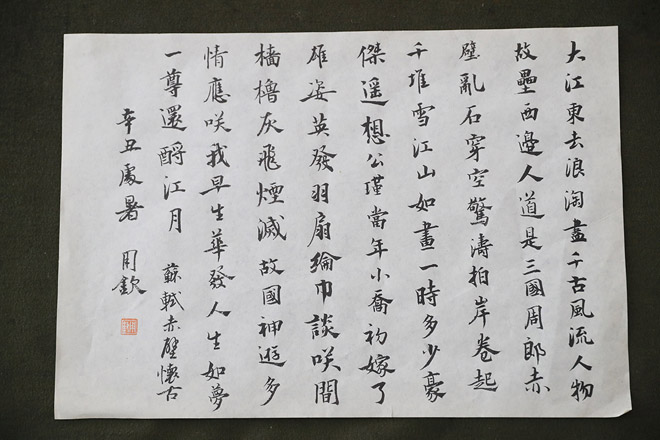 大江東去浪淘盡千古風流人物
故壘西邊人道是三國周郎赤
壁亂石穿空驚濤拍岸卷起
千堆雪江山如畫一時多少豪
傑遥想公瑾當年小喬初嫁了
雄姿英發羽扇綸巾談咲間
檣櫓灰飛煙滅故國神遊多
情應咲我早生華發人生如夢
一尊還酹江月 蘇軾赤壁懷古
辛丑處暑 用欽